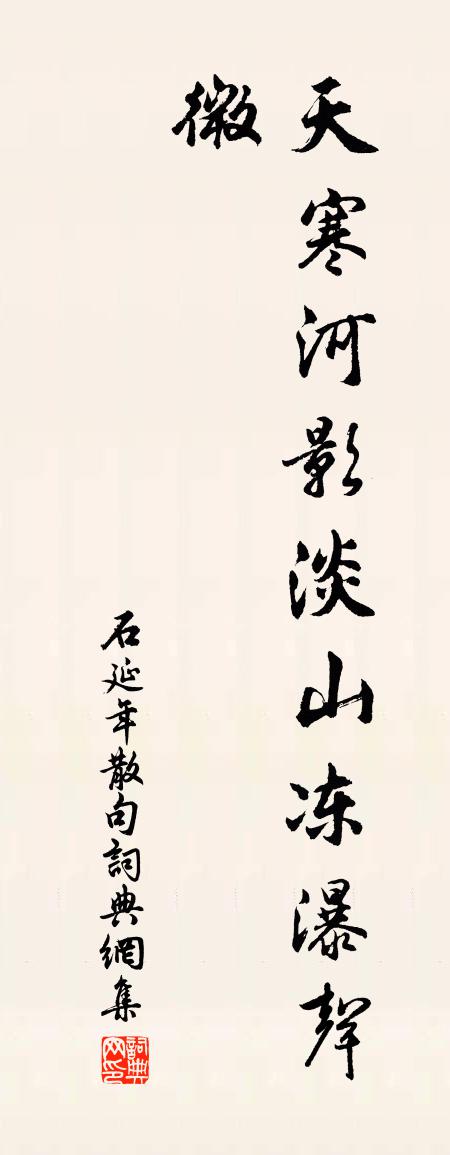 天寒河影淡山冻瀑聲
微
石延年散句詞典網集
詞典网印